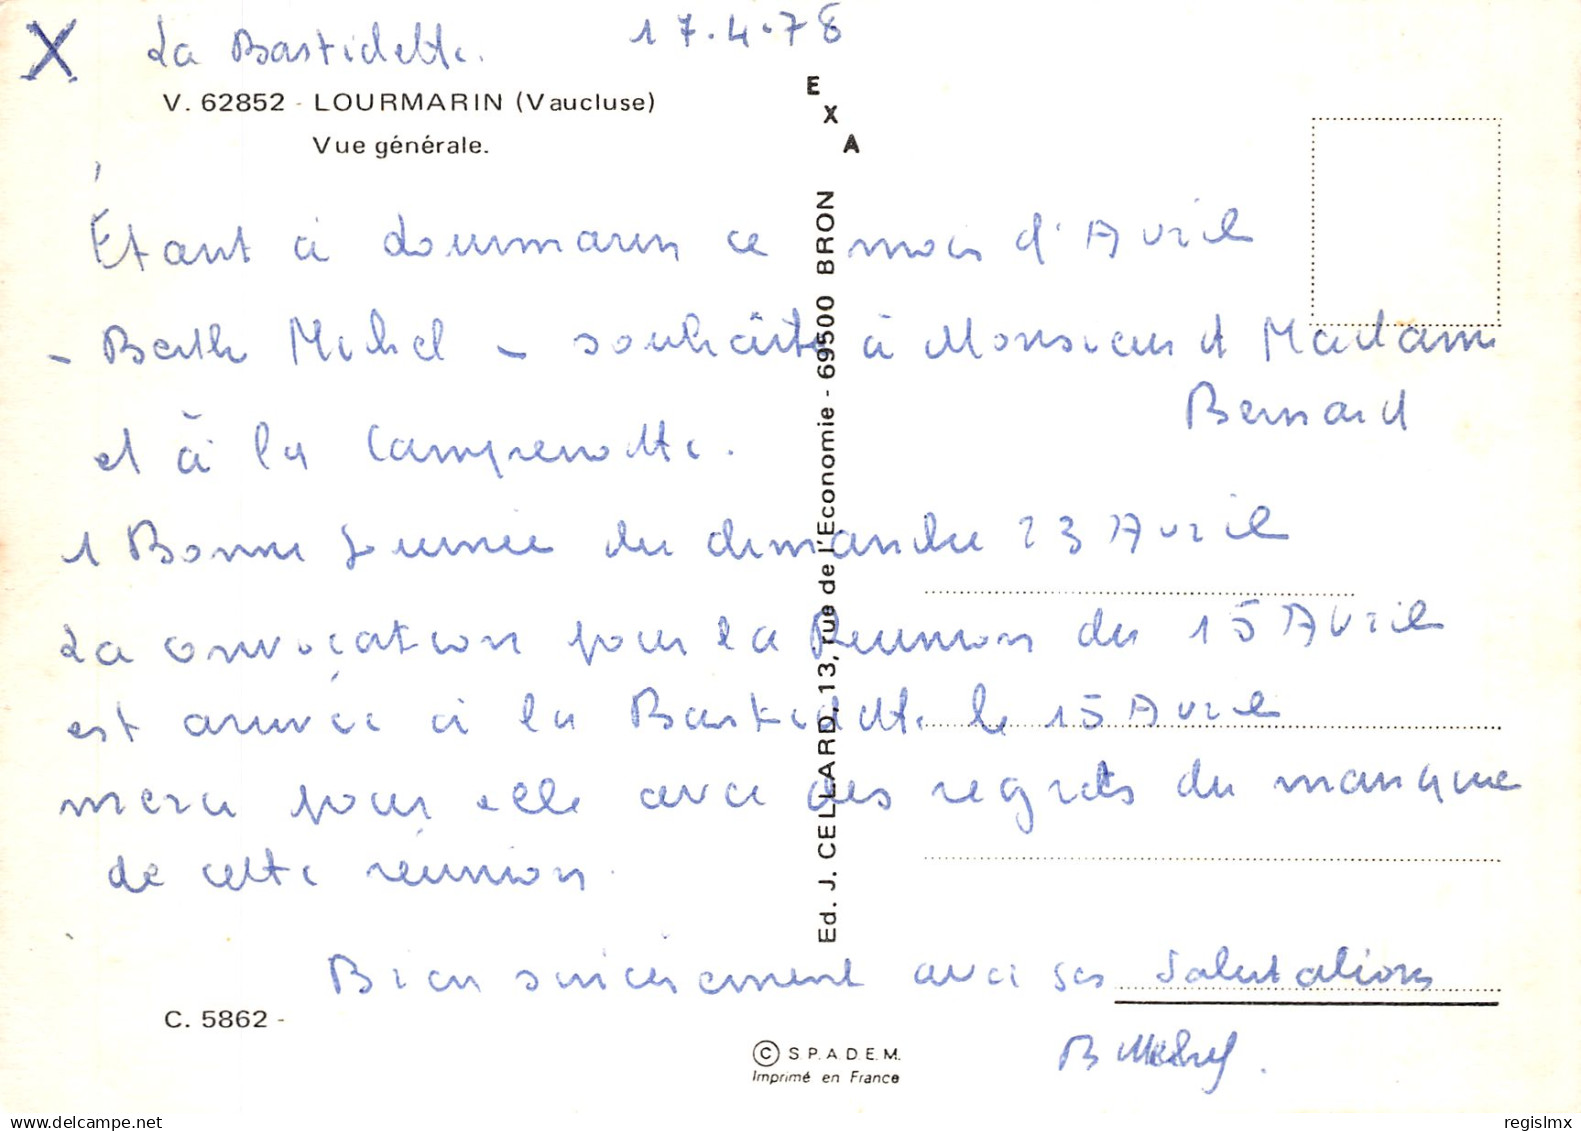 X La Bastidette. 17.4.78
V. 62852 - LOURMARIN (Vaucluse)
Vue générale.
E X A
Étant à Lourmarin ce mois d'Avril
- Berthe Michel - souhaite à Monsieur et Madame
Bernard
et à la
1 Bonne Journée du dimanche 23 Avril
La convocation pour la Réunion du 15 Avril
est arrivée à la Bastidette le 15 Avril
merci pour elle avec des regrets du manque
de cette réunion.
Bien sincèrement avec ses Salutations
B Michel.
Ed. J. CELLARD, 13, rue de l'Economie - 69500 BRON
C. 5862 -
© S.P.A.D.E.M.
Imprimé en France
regislmx